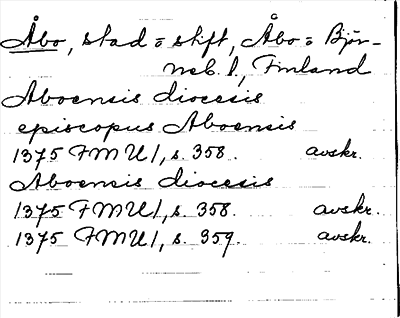 Åbo, stad o stift, Åbo o Björ-
neb. l., Finland
Aboensis diocesis
episcopus Aboensis
1375 FMU 1, s. 358. avskr.
Aboensis diocesis
1375 FMU 1, s. 358. avskr.
1375 FMU 1, s. 359. avskr.